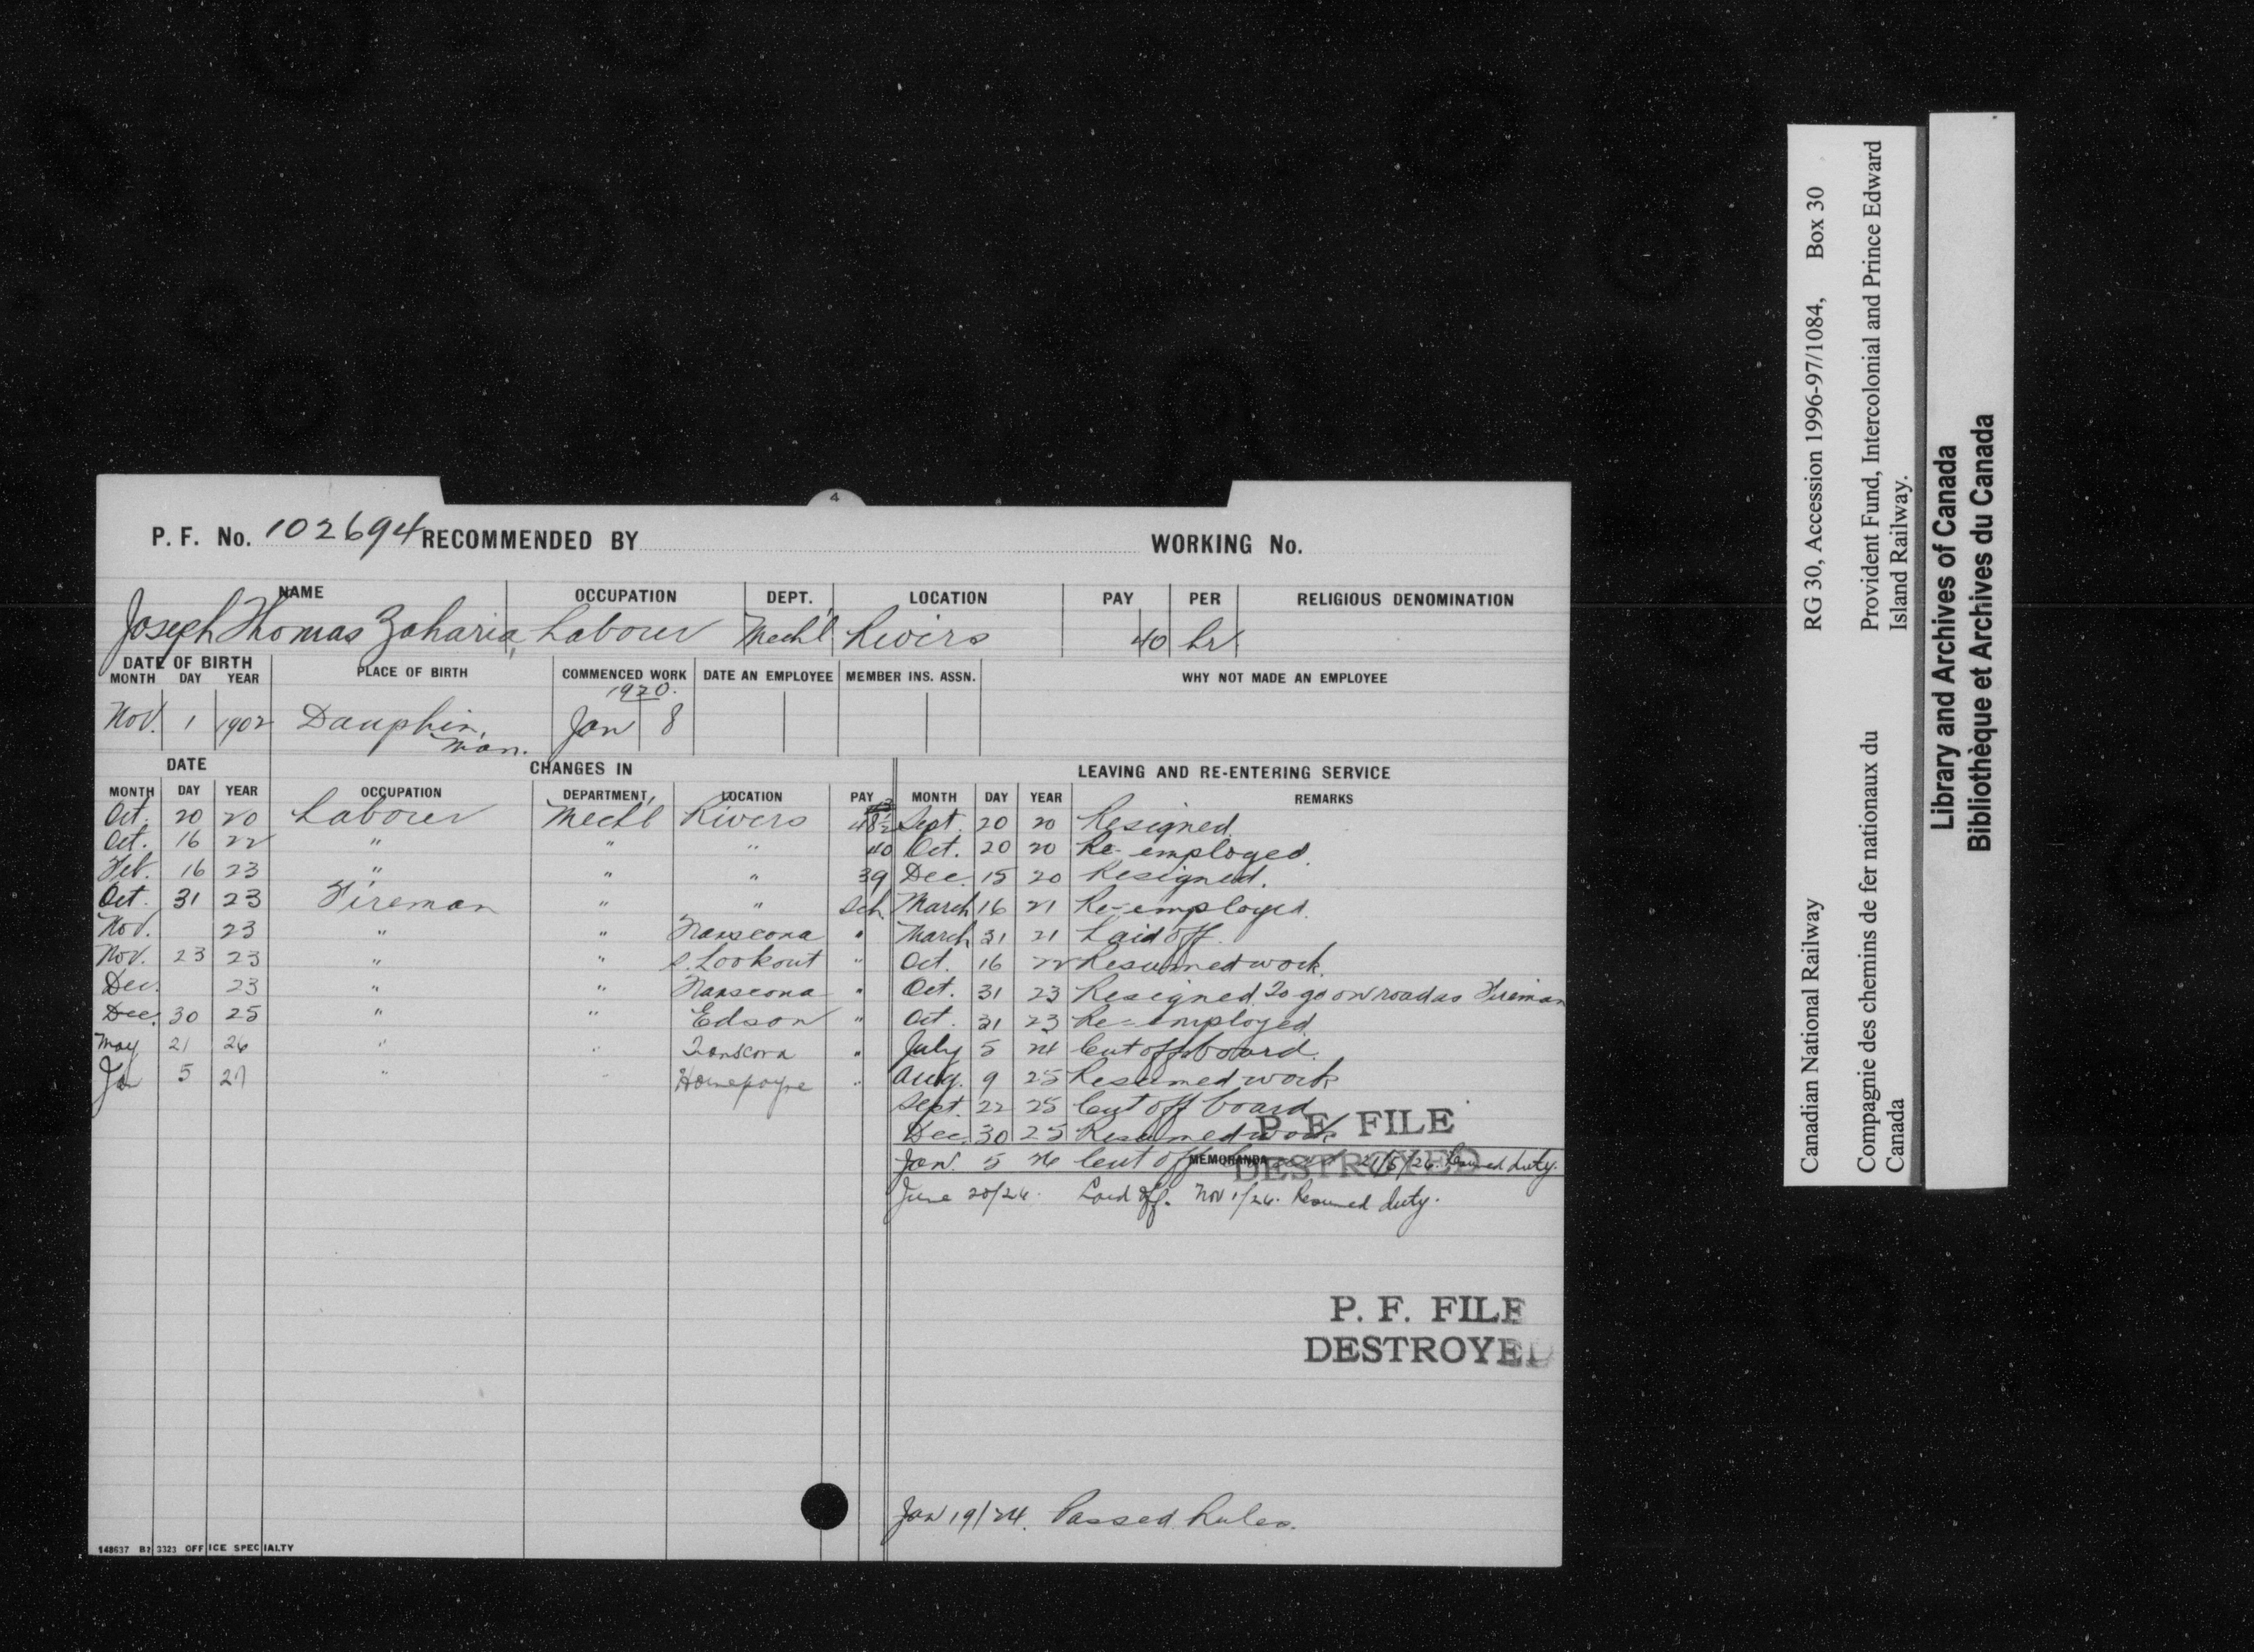 4
P. F. No. 102694 RECOMMENDED BY WORKING No.
NAME OCCUPATION DEPT. LOCATION PAY PER RELIGIOUS DENOMINATION
Joseph Thomas Zaharia, Labourer Mechl Rivers 40 hr.
DATE OF BIRTH PLACE OF BIRTH COMMENCED WORK DATE AN EMPLOYEE MEMBER INS. ASSN. WHY NOT MADE AN EMPLOYEE
MONTH DAY YEAR
1920.
Nov. 1 1902 Dauphin, Man. Jan 8
DATE CHANGES IN LEAVING AND RE-ENTERING SERVICE
MONTH DAY YEAR OCCUPATION DEPARTMENT LOCATION PAY MONTH DAY YEAR REMARKS
Oct. 20 20 Labourer Mechl Rivers 48½ Sept. 20 20 Resigned.
Oct. 16 22 " " " 40 Oct. 20 20 Re-employed.
Feb. 16 23 " " " 39 Dec. 15 20 Resigned.
Oct. 31 23 Fireman " " Sch. March 16 21 Re-employed.
Nov. 23 " " Transcona " March 31 21 Laid off.
Nov. 23 23 " " S. Lookout " Oct. 16 22 Resumed work.
Dec. 23 " " Transcona " Oct. 31 23 Resigned. To go on road as Fireman
Dec. 30 25 " " Edson " Oct. 31 23 Re-employed.
May 21 26 " " Transcona " July 5 24 Cut off board.
Jan 5 27 " " Hornepayne " Aug. 9 25 Resumed work
Sept. 22 25 Cut off board
Dec. 30 25 Resumed work
P. F. FILE
DESTROYED
MEMORANDA
Jan. 5 26 Cut off board 21/5/26. Resumed duty.
June 20/26. Laid off. Nov 1/26. Resumed duty.
P. F. FILE
DESTROYED
Jan 19/24. Passed Rules.
148637 B1 3323 OFFICE SPECIALTY
Canadian National Railway RG 30, Accession 1996-97/1084, Box 30
Compagnie des chemins de fer nationaux du Canada
Provident Fund, Intercolonial and Prince Edward Island Railway.
Library and Archives of Canada
Bibliothèque et Archives du Canada